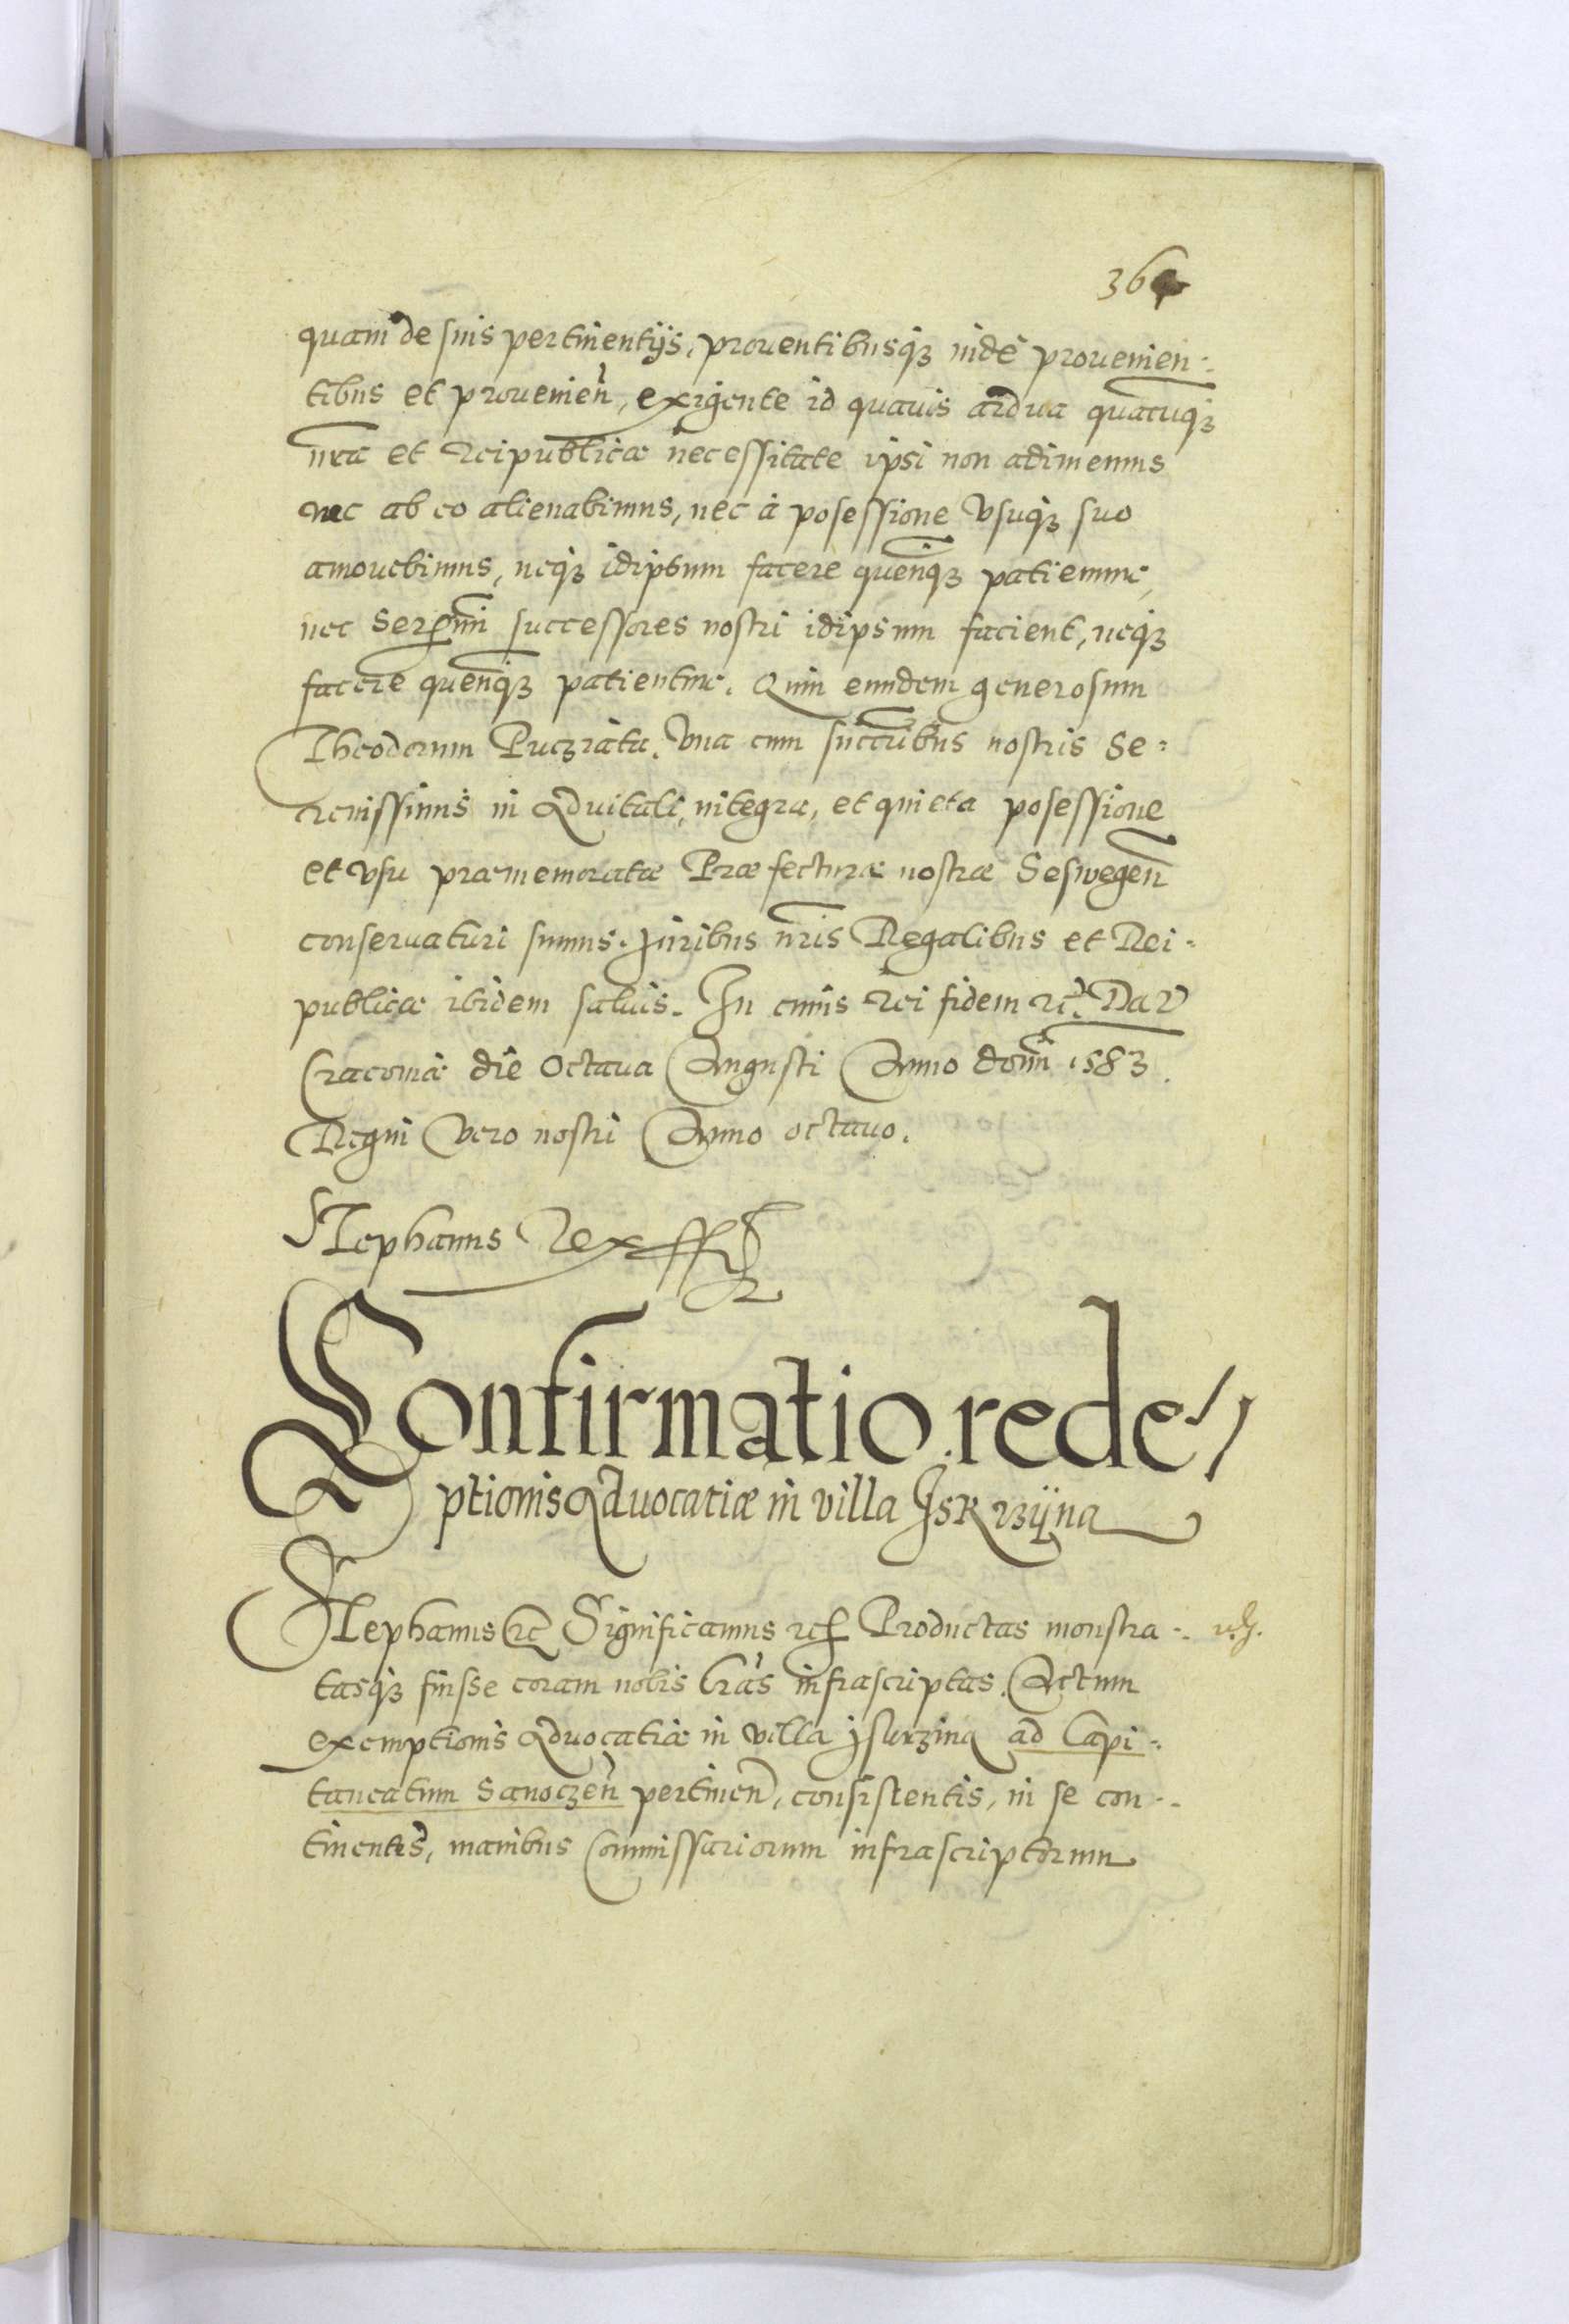 quam de suis pertinentijs, prouentibusq₃ indé prouenien-
tibus et prouenień, exigente id quauis ardua quacuq₃
nra et Reipublicæ necessitate ipsi non adimemus
nec ab eo alienabimus, nec á posessione Vsuq₃ suo
amouebimus, neq₃ idipsum facere quenq₃ patiemur,
nec Sermi successores nostri idipsum facient, neq₃
facere quenq₃ patientur. Quin eundem generosum
Theodorum Pucziata, Vna cum succribus nostris Se-
renissimis in Aduitali, integra, et quieta posessione
et vsu præmemoratæ Præfecturæ nostræ Seswegen
conseruaturi sumus. Juribus nris Regalibus et Rei-
publicæ ibidem saluis. In cuius rei fidem etc. Dat
Cracouiæ die Octaua Augusti Anno domi 1583.
Regni Vero nostri Anno octauo.
Stephanus Rex
Confirmatio rede
ptionis Aduocatiæ in villa Iskrzijna
Stephanus etc Significamus etc Productas monstra-
tasq₃ fuisse coram nobis Lras infrascriptas Actum
exemptionis Aduocatiæ in villa Jskrzina ad Capi-
taneatum Sanoczeń pertinen, consistentis, in se con-
tinentes, manibus Commissariorum infrascriptorum